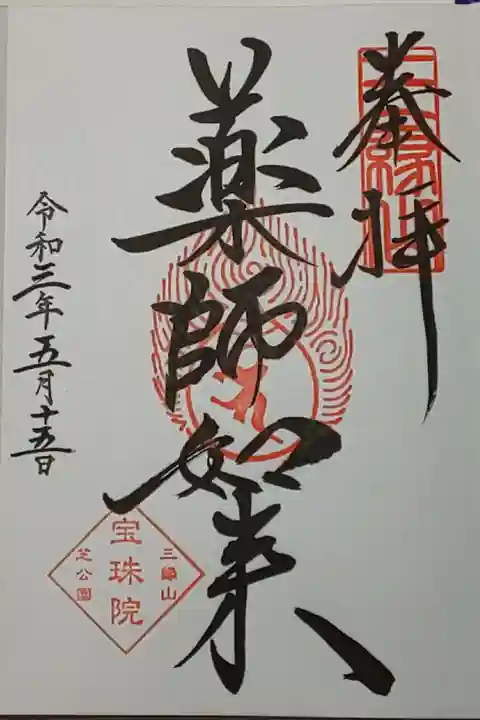 奉拝
薬師如来
令和三年五月十五日
三縁山
宝珠院
芝公園